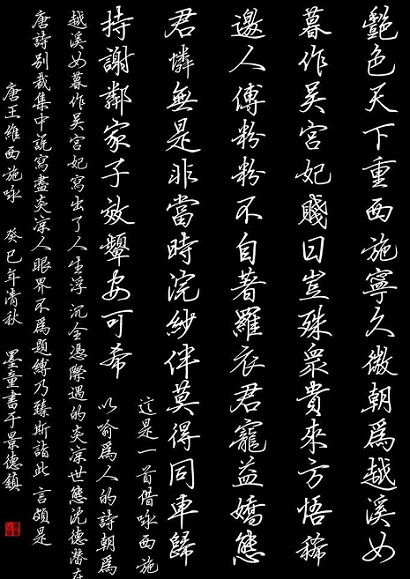 艷色天下重西施寧久微朝爲越溪女
暮作吴宮妃賤日豈殊衆貴來方悟稀
邀人傅粉粉不自著羅衣君寵益嬌態
君憐無是非當時浣紗伴莫得同車歸
持謝鄰家子效顰安可希
這是一首借咏西施
以喻爲人的詩朝爲
越溪女暮作吴宮妃寫出了人生浮沉全憑際遇的炎凉世態沈德潛在
唐詩别裁集中説寫盡炎凉人眼界不爲題縛乃臻斯詣此言頗是
唐王維西施咏 癸巳年清秋 墨童書于景德鎮